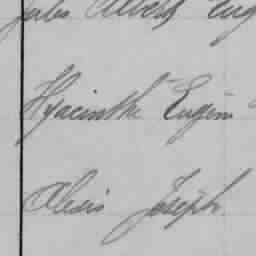 Jules Albert Eug
Hyacinthe Eugène
Alexis Joseph